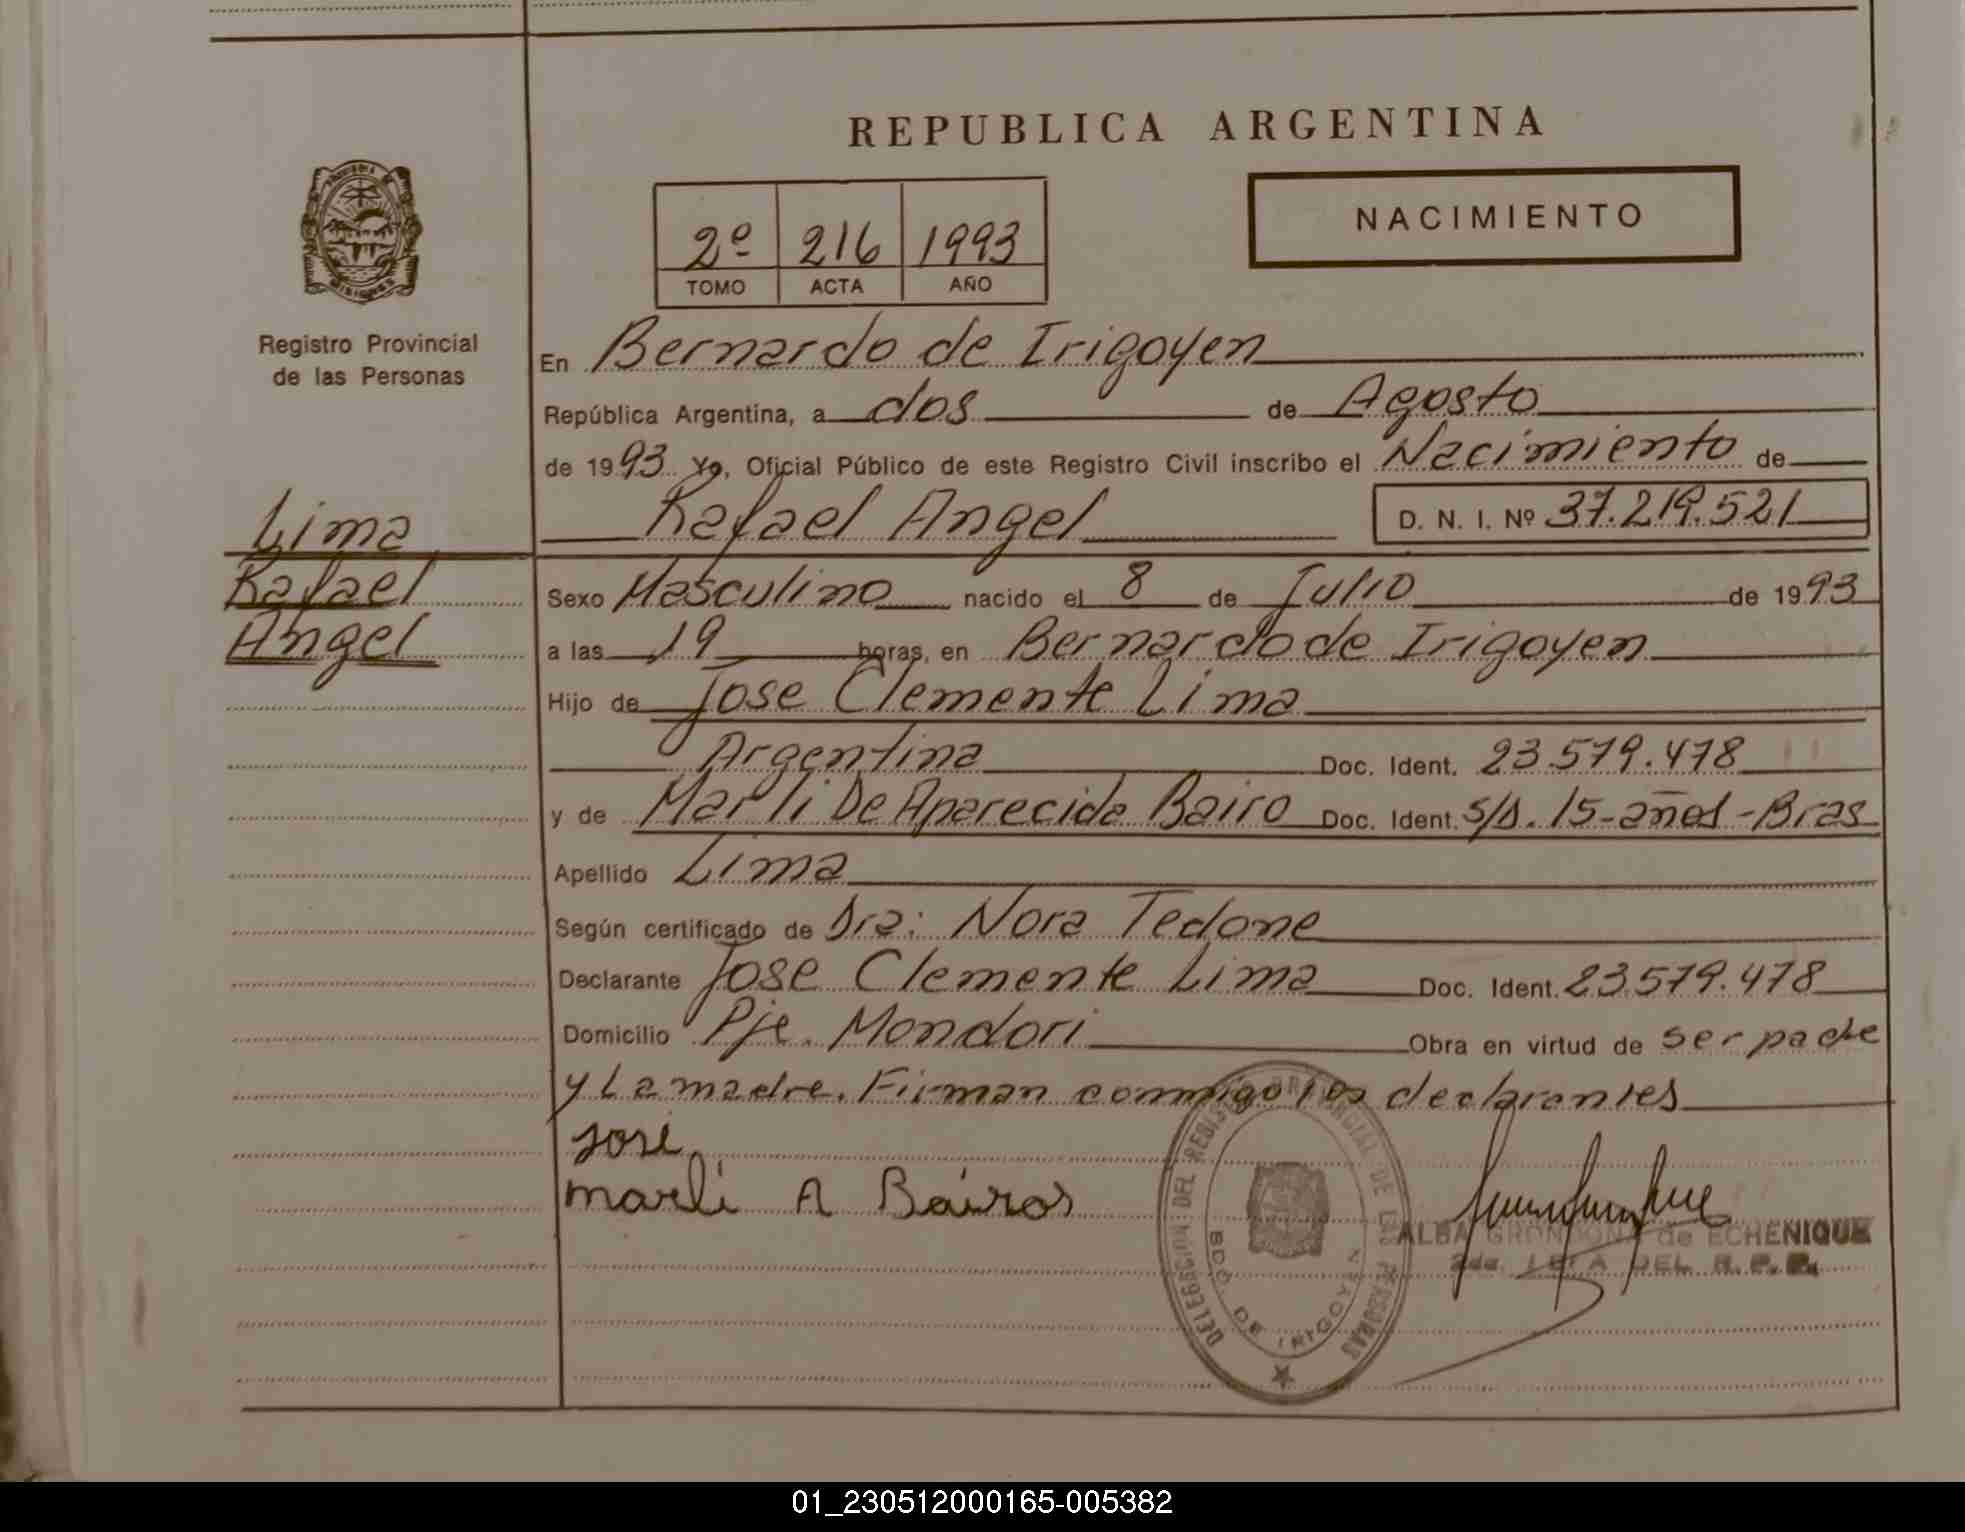 REPUBLICA ARGENTINA
NACIMIENTO
2º 216 1993
TOMO ACTA AÑO
Registro Provincial
de las Personas
En Bernardo de Irigoyen
República Argentina, a dos de Agosto
de 1993 Yo, Oficial Público de este Registro Civil inscribo el Nacimiento de
Rafael Angel D. N. I. Nº 37.219.521
Lima
Rafael
Angel
Sexo Masculino nacido el 8 de Julio de 1993
a las 19 horas, en Bernardo de Irigoyen
Hijo de Jose Clemente Lima
Argentina Doc. Ident. 23.579.478
y de Marli De Aparecida Bairo Doc. Ident. S/D. 15-años-Bras
Apellido Lima
Según certificado de Dra: Nora Tedone
Declarante Jose Clemente Lima Doc. Ident. 23.579.478
Domicilio Pje. Mondori Obra en virtud de ser padre
y La madre. Firman conmigo los declarantes
José
marli A Bairos
DELEGACION DEL REGISTRO PROVINCIAL DE LAS PERSONAS
BDO. DE IRIGOYEN
ALBA GRONDONA de ECHENIQUE
2da. JEFA DEL R.P.P.
01_230512000165-005382